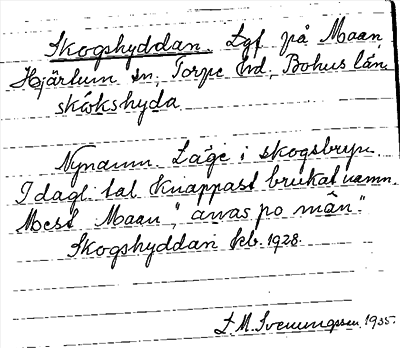 Skogshyddan. Lgf på Maan,
Hjärtum sn, Torpe hd, Bohus län.
skókshyda
Nynamn. Läge i skogsbryn.
I dagl. tal knappast brukat namn.
Mest Maan, "anas po mân".
Skogshyddan kb. 1928.
L.M. Svenungsson 1935.